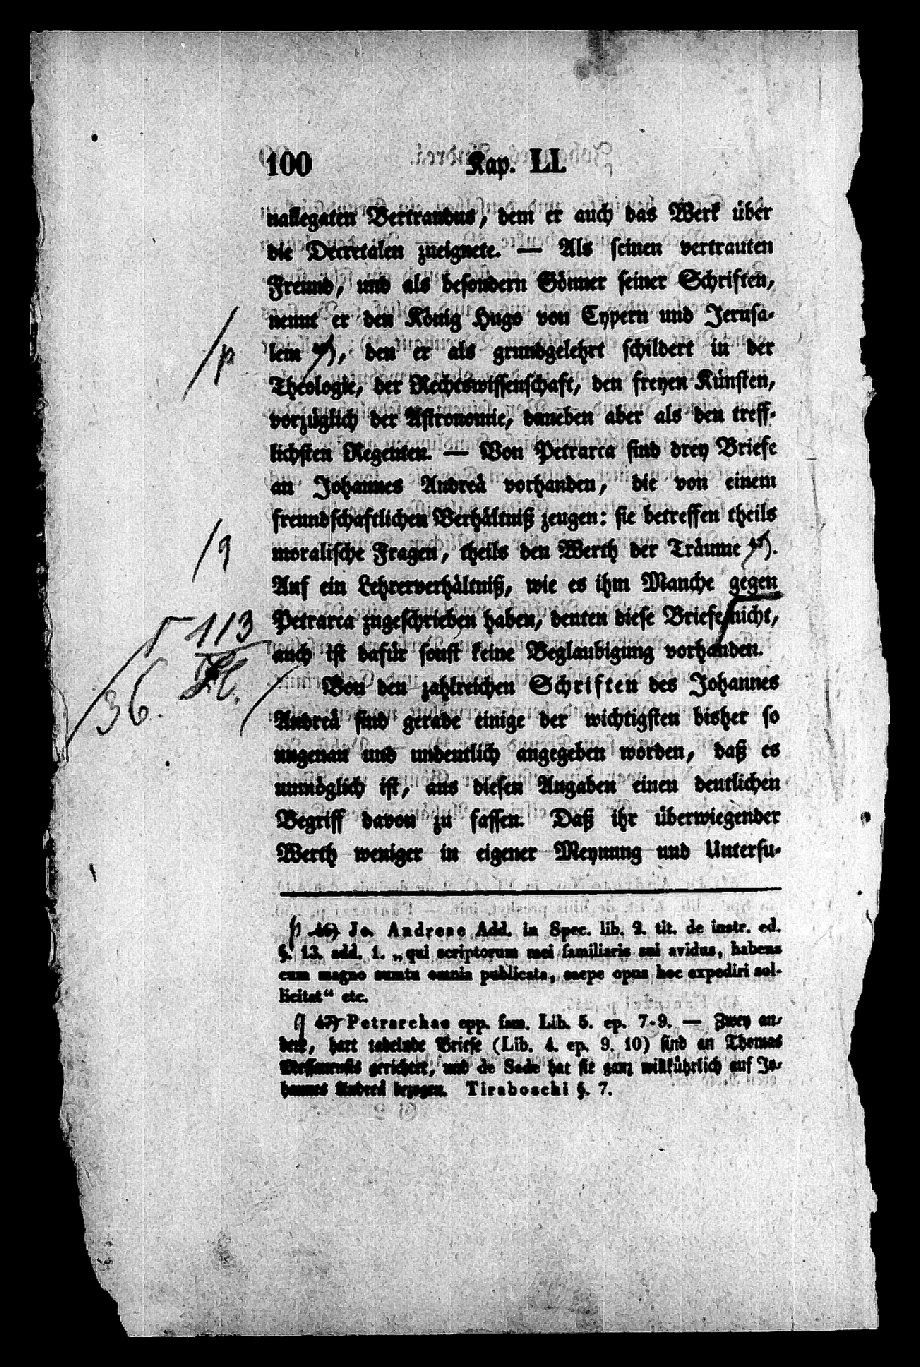 100 Kap. LI.
nallegaten Bertrandus, dem er auch das Werk über
die Decretalen zueignete. — Als seinen vertrauten
Freund, und als besondern Gönner seiner Schriften,
nennt er den König Hugo von Cypern und Jerusa-
p lem 46), den er als grundgelehrt schildert in der
Theologie, der Rechtswissenschaft, den freyen Künsten,
vorzüglich der Astronomie, daneben aber als den treff-
lichsten Regenten. — Von Petrarca sind drey Briefe
an Johannes Andreä vorhanden, die von einem
freundschaftlichen Verhältniß zeugen: sie betreffen theils
q moralische Fragen, theils den Werth der Träume 47).
Auf ein Lehrerverhältniß, wie es ihm Manche gegen
113 Petrarca zugeschrieben haben, deuten diese Briefe nicht,
36. auch ist dafür sonst keine Beglaubigung vorhanden.
Von den zahlreichen Schriften des Johannes
Andreä sind gerade einige der wichtigsten bisher so
ungenau und undeutlich angegeben worden, daß es
unmöglich ist, aus diesen Angaben einen deutlichen
Begriff davon zu fassen. Daß ihr überwiegender
Werth weniger in eigener Meynung und Untersu-
p 46) Jo. Andreae Add. in Spec. lib. 2. tit. de instr. ed.
§. 13. add. 1. „qui scriptorum mei familiaris sui avidus, habens
cum magno sumtu omnia publicata, saepe opus hoc expediri sol-
licitat“ etc.
q 47) Petrarchae epp. fam. Lib. 5. ep. 7-9. — Zwey an-
dere, hart tadelnde Briefe (Lib. 4. ep. 9. 10) sind an Thomas
Messanensis gerichtet, und de Sade hat sie ganz willkührlich auf Jo-
hannes Andreä bezogen. Tiraboschi §. 7.